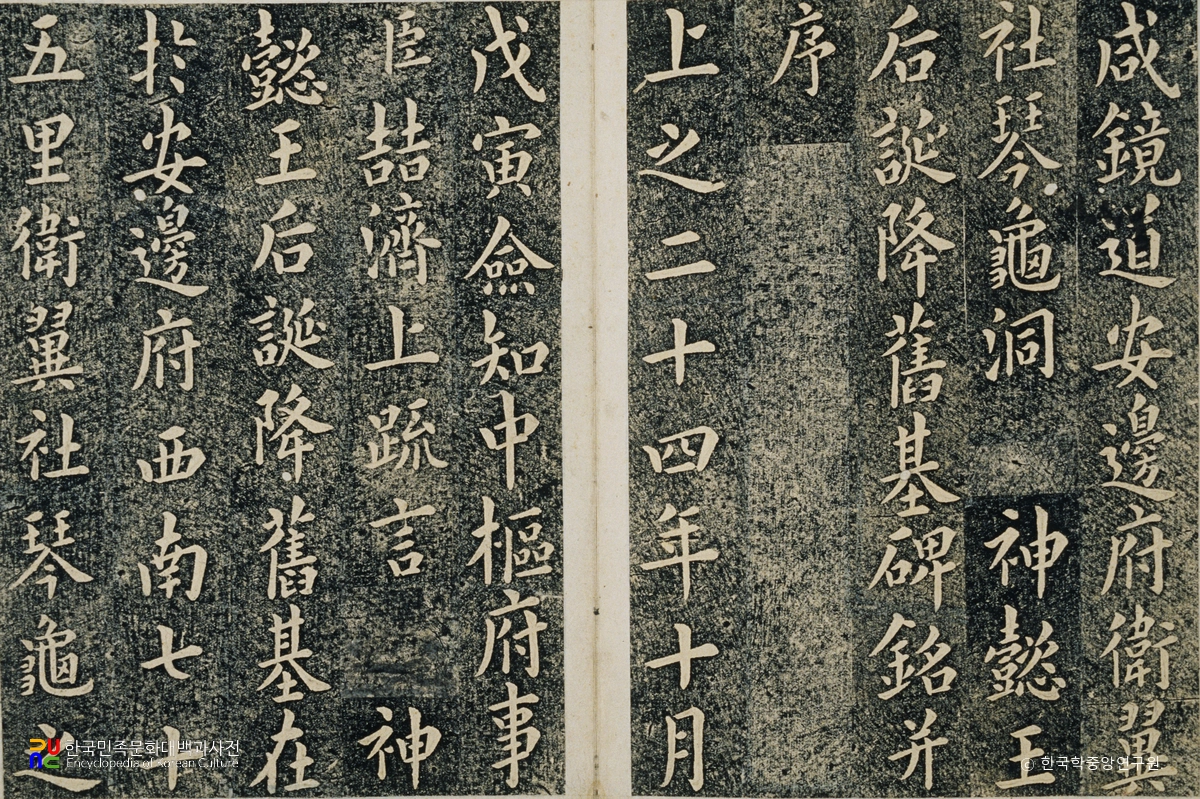 咸鏡道安邊府衛翼
社琴龜洞 神懿王
后誕降舊基碑銘并
序
上之二十四年十月
戊寅僉知中樞府事
臣喆濟上疏言 神
懿王后誕降舊基在
於安邊府西南七十
五里衛翼社琴龜之
한국민족문화대백과사전
Encyclopedia of Korean Culture
© 한국학중앙연구원